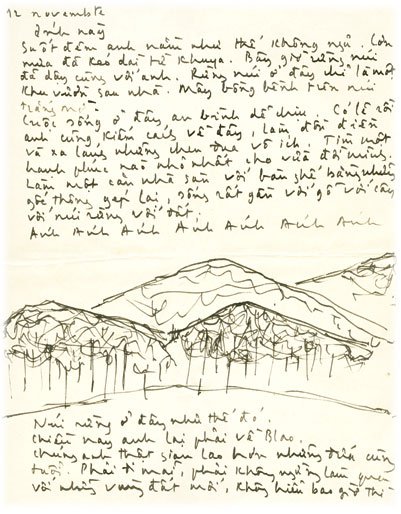 12 novembre
Ánh này
Suốt đêm anh nằm như thế không ngủ. Cơn
mưa đã kéo dài từ khuya. Bây giờ rừng núi
đã dậy cùng với anh. Rừng núi ở đây chỉ là một
khu vườn sau nhà. Mây bồng bềnh trên núi
trắng mờ.
Cuộc sống ở đây an bình dễ chịu. Có lẽ rồi
anh cũng kiếm cách về đây, làm đồn điền
và xa lánh những chen đua vô ích. Tìm một
hạnh phúc nào nhỏ nhất cho vừa đời mình.
Làm một căn nhà sàn với bàn ghế bằng những
gốc thông lại, sống rất gần với gỗ với cây
với núi rừng với đất.
Ánh Ánh Ánh Ánh Ánh Ánh Ánh
Núi rừng ở đây như thế đó.
Chiều nay anh lại phải về Blao.
Chúng anh thật gian lao hơn những đứa cùng
tuổi. Phải đi mãi, phải không ngừng làm quen
với những vùng đất mới, không hiểu bao giờ thì